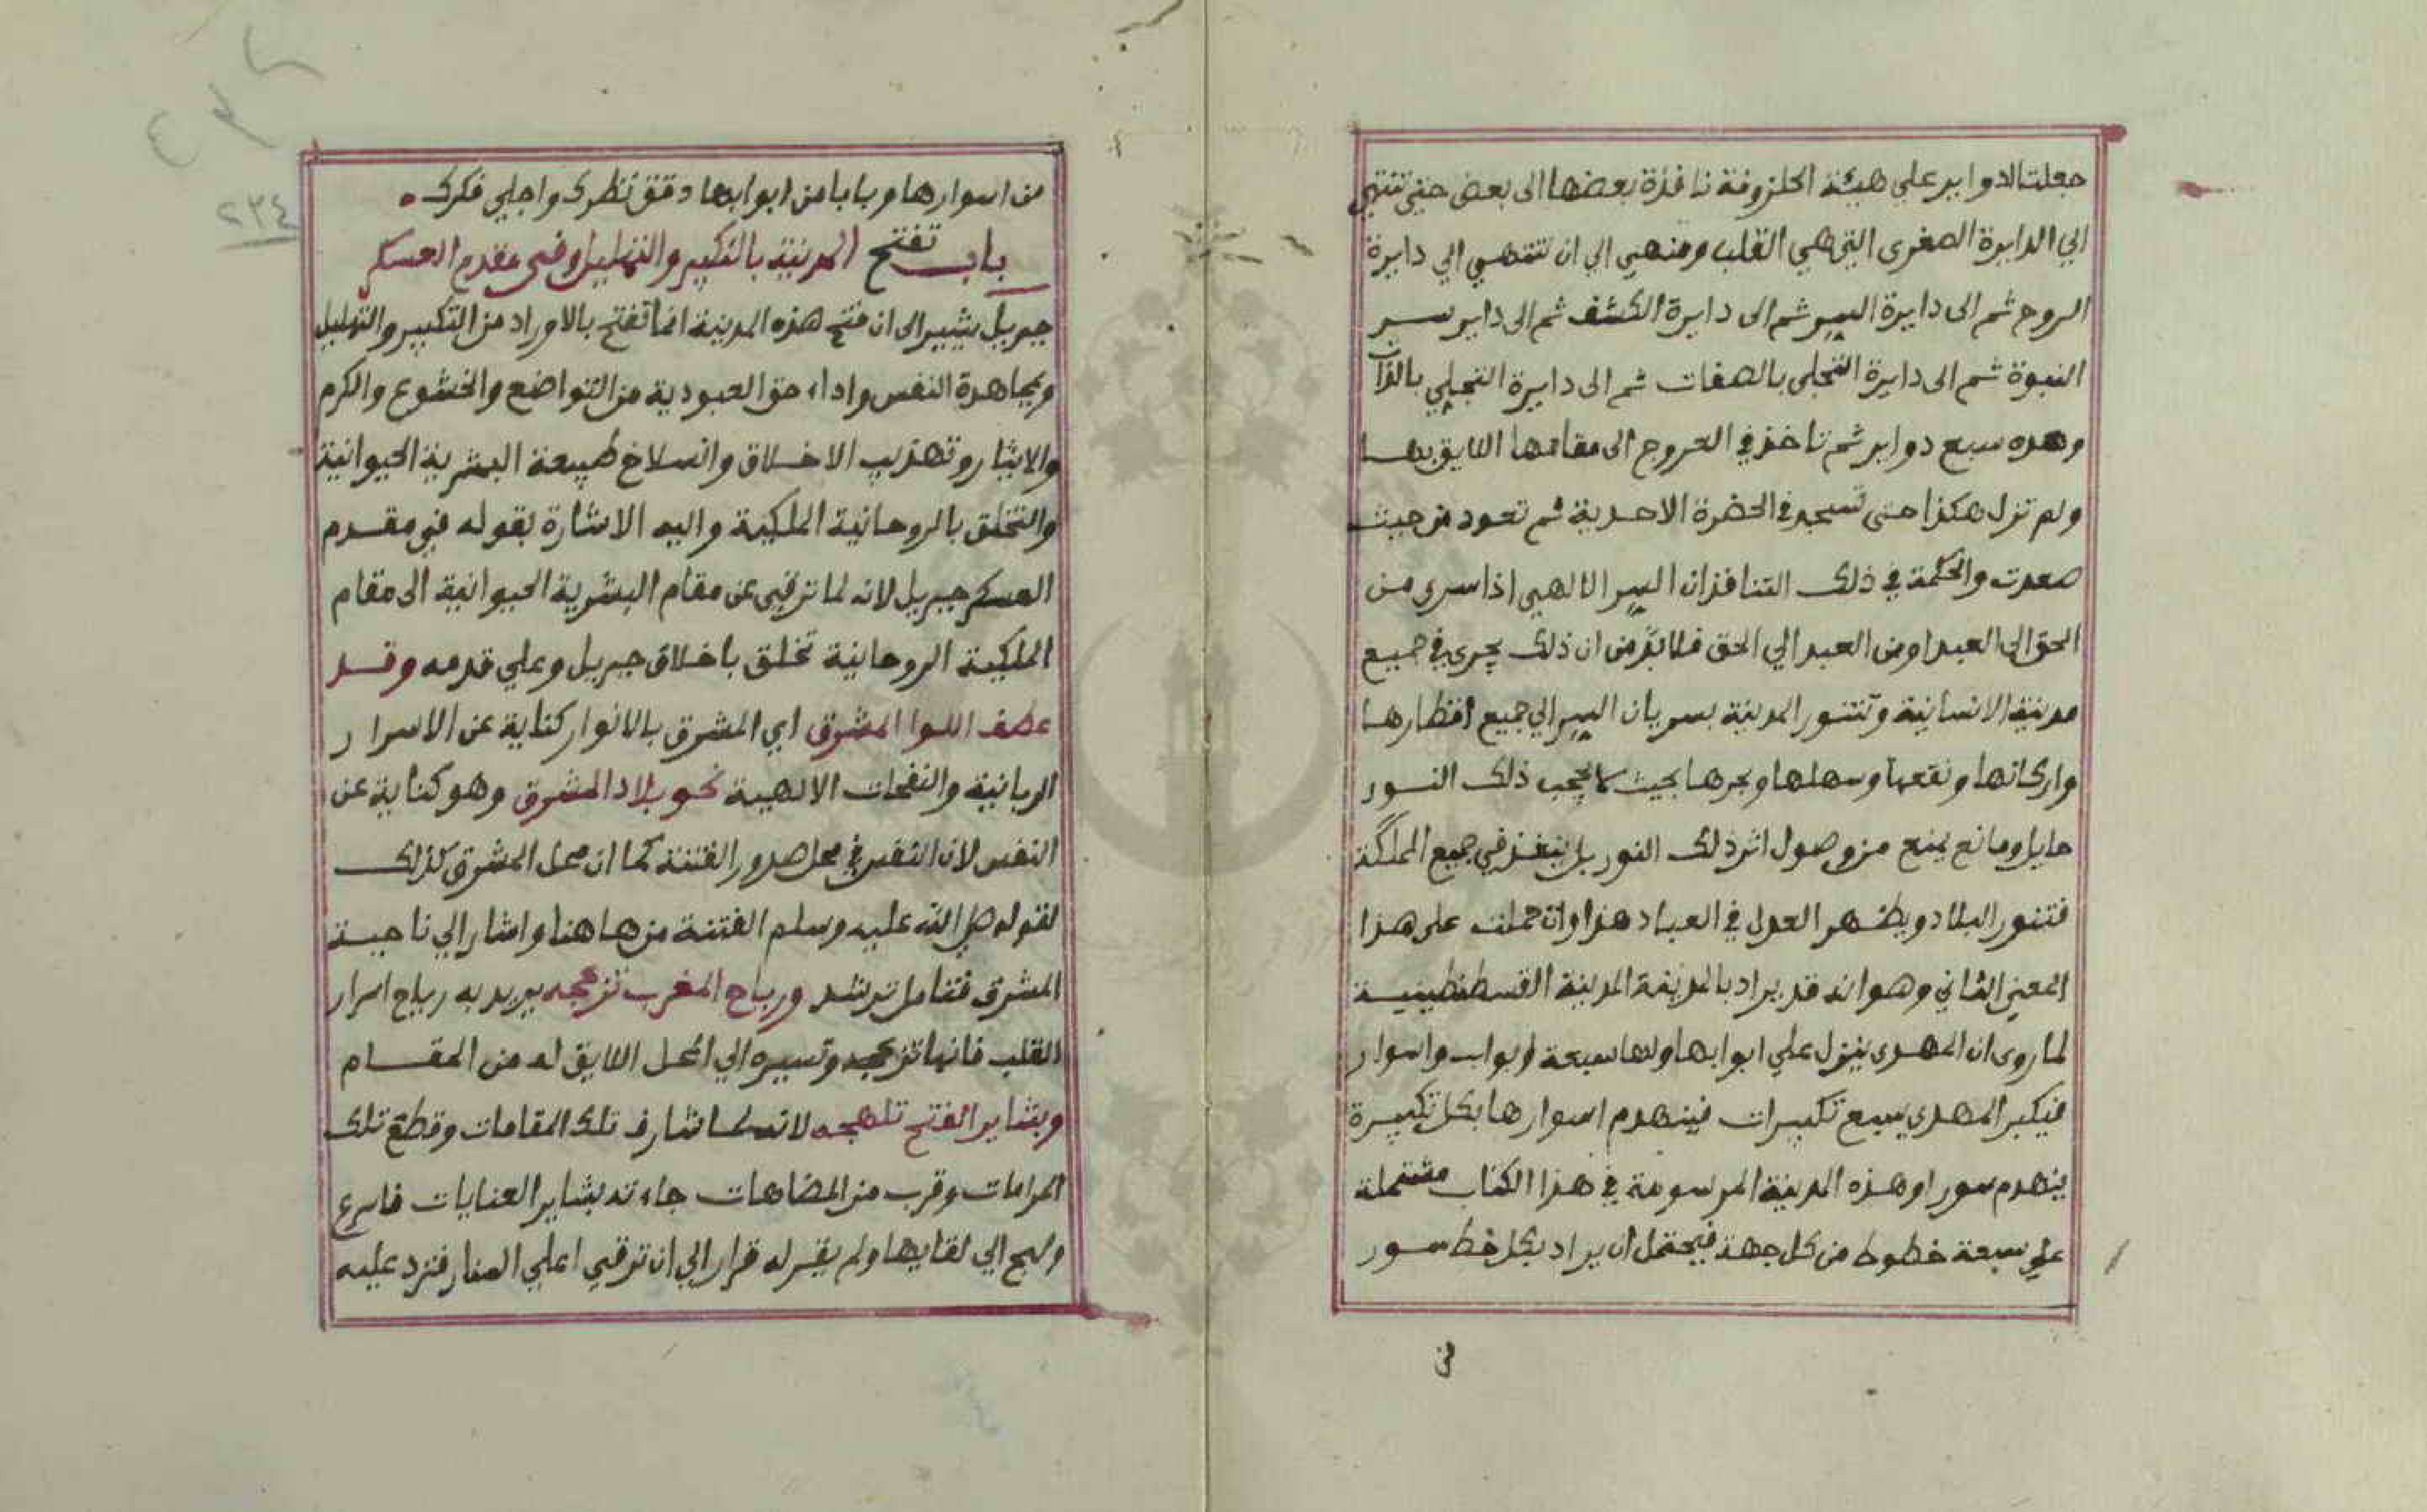 جعلت الدواير على هيئة الحلزونة نافذة بعضها الى بعض حتى تنتهي
الي الدايرة الصغرى التي هي القلب ومنهي الي ان تنتهي الي دايرة
الروح ثم الى دايرة السر ثم الى دايرة الكشف ثم الى داير سر
النبوة ثم الى دايرة التجلي بالصفات ثم الى دايرة التجلي بالذات
وهذه سبع دواير ثم تاخذ في العروج الى مقامها اللايق بها
ولم تزل هكذا حتى تسجد في الحضرة الاحدية ثم تعود من حيث
صعدت والحكمة في ذلك التنافذ ان السر الالهي اذا سرى من
الحق الي العبد او من العبد الي الحق فلا بد من ان ذلك يجري في جميع
مدينة الانسانية وتتنور المدينة بسريان السر الي جميع اقطارها
واركانها وبقعها وسهلها وبحرها بحيث لا يحجب ذلك النور
حايل ومانع يمنع من وصول اثر ذلك النور بل ينفذ في جميع المملكة
فتنور البلاد ويظهر العدل في العباد هذا وان حملت على هذا
المعني الثاني وهو انه قد يراد بالمدينة المدينة القسطنطينية
لما روى ان المهدى ينزل علي ابوابها ولها سبعة ابواب واسوار
فيكبر المهدي سبع تكبيرات فينهدم اسوارها بكل تكبيرة
ينهدم سورا وهذه المدينة المرسومة في هذا الكتاب مشتملة
علي سبعة خطوط من كل جهة فيحتمل ان يراد بكل خط سور
من
٢٣٤
من اسوارها وبابا من ابوابها دقق نظرك واجلي فكرك
باب تفتح المدينة بالتكبير والتهليل وفي مقدم العسكر
جبريل يشير الى ان فتح هذه المدينة انما تفتح بالاوراد من التكبير والتهليل
وبجاهدة النفس واداء حق العبودية من التواضع والخشوع والكرم
والايثار وتهذيب الاخلاق وانسلاخ طبيعة البشرية الحيوانية
والتخلق بالروحانية الملكية واليه الاشارة بقوله في مقدم
العسكر جبريل لانه لما ترقي عن مقام البشرية الحيوانية الى مقام
الملكية الروحانية تخلق باخلاق جبريل وعلي قدمه وقد
عطف اللوا المشرق اي المشرق بالانوار كناية عن الاسرار
الربانية والنفحات الالهية نحو بلاد المشرق وهو كناية عن
النفس لان النفس في محل صدور الفتنة كما ان محل المشرق كذلك
لقوله صلى الله عليه وسلم الفتنة من هاهنا واشار الي ناحية
المشرق فتامل ترشد ورياح المغرب تزعجه يريد به رياح اسرار
القلب فانها تزعجه وتسيره الي المحل اللايق له من المقام
وبشاير الفتح تلهجه لانه لما شارف تلك المقامات وقطع تلك
المرامات وقرب من المضاهات جاءته بشاير العنايات فاسرع
ولهج الي لقايها ولم يقر له قرار الي ان ترقي اعلي المنار فترد عليه